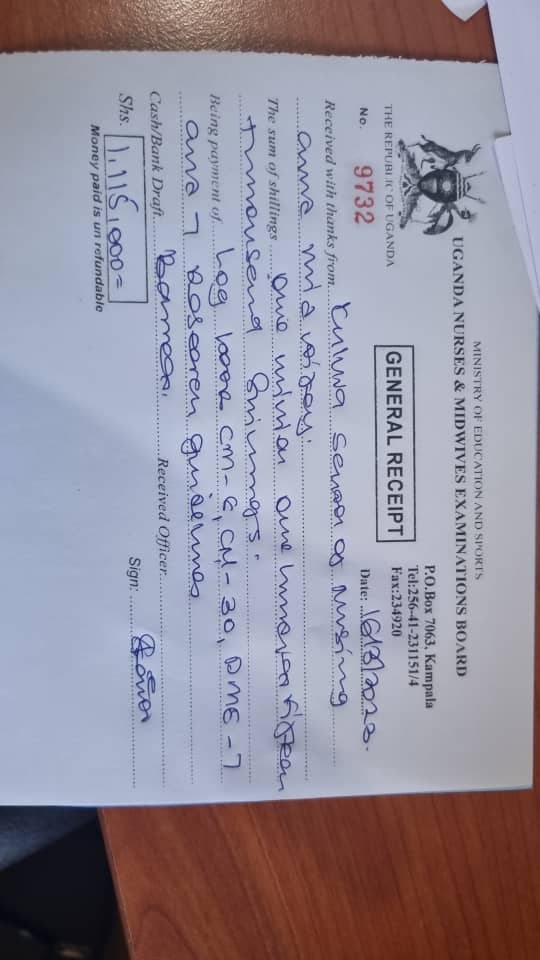 MINISTRY OF EDUCATION AND SPORTS
UGANDA NURSES & MIDWIVES EXAMINATIONS BOARD
P.O.Box 7063, Kampala
Tel:256-41-231151/4
Fax:234920
THE REPUBLIC OF UGANDA
GENERAL RECEIPT
No. 9732
Date: 16/3/2023.
Received with thanks from Kuluva School of Nursing
and midwifery.
The sum of shillings one million one hundred fifteen
thousand shillings.
Being payment of Log book CM-6, CN-30, DME-7
and 7 Research guidelines
Cash/Bank Draft Received Officer
Shs. 1,115,000= Sign:
Money paid is un refundable